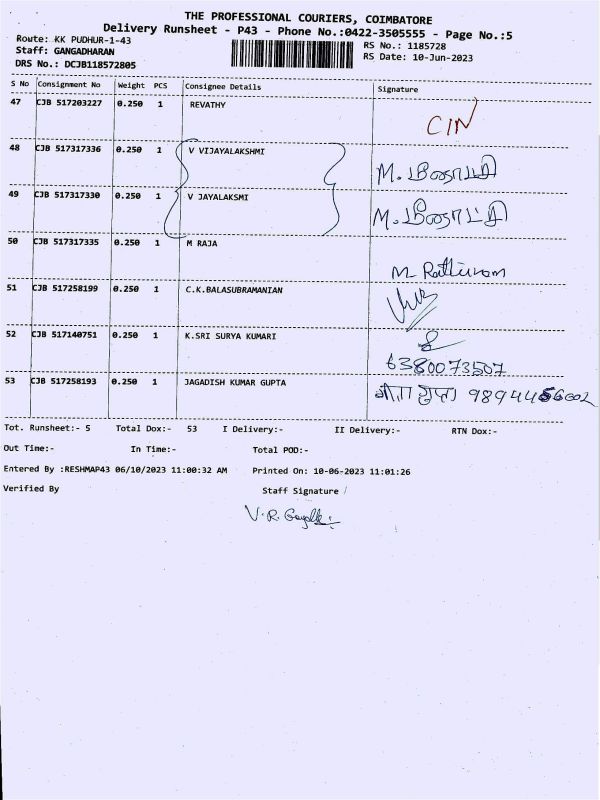 THE PROFESSIONAL COURIERS, COIMBATORE
Delivery Runsheet - P43 - Phone No.:0422-3505555 - Page No.:5
Route: KK PUDHUR-1-43
RS No.: 1185728
Staff: GANGADHARAN
RS Date: 10-Jun-2023
DRS No.: DCJB118572805
S No Consignment No Weight PCS Consignee Details Signature
47 CJB 517203227 0.250 1 REVATHY
CIN
48 CJB 517317336 0.250 1 V VIJAYALAKSHMI
M.
49 CJB 517317330 0.250 1 V JAYALAKSMI
M.
50 CJB 517317335 0.250 1 M RAJA
M
51 CJB 517258199 0.250 1 C.K.BALASUBRAMANIAN
52 CJB 517140751 0.250 1 K.SRI SURYA KUMARI
6380073507
53 CJB 517258193 0.250 1 JAGADISH KUMAR GUPTA
गुप्ता
Tot. Runsheet:- 5 Total Dox:- 53 I Delivery:- II Delivery:- RTN Dox:-
Out Time:- In Time:- Total POD:-
Entered By :RESHMAP43 06/10/2023 11:00:32 AM Printed On: 10-06-2023 11:01:26
Verified By Staff Signature
V.R.